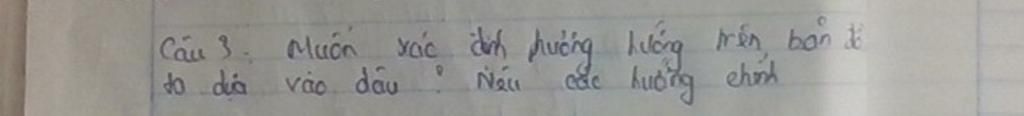 Câu 3. Muốn xác định phướng hướng trên bản đồ
ta dựa vào đâu? Nêu các hướng chính